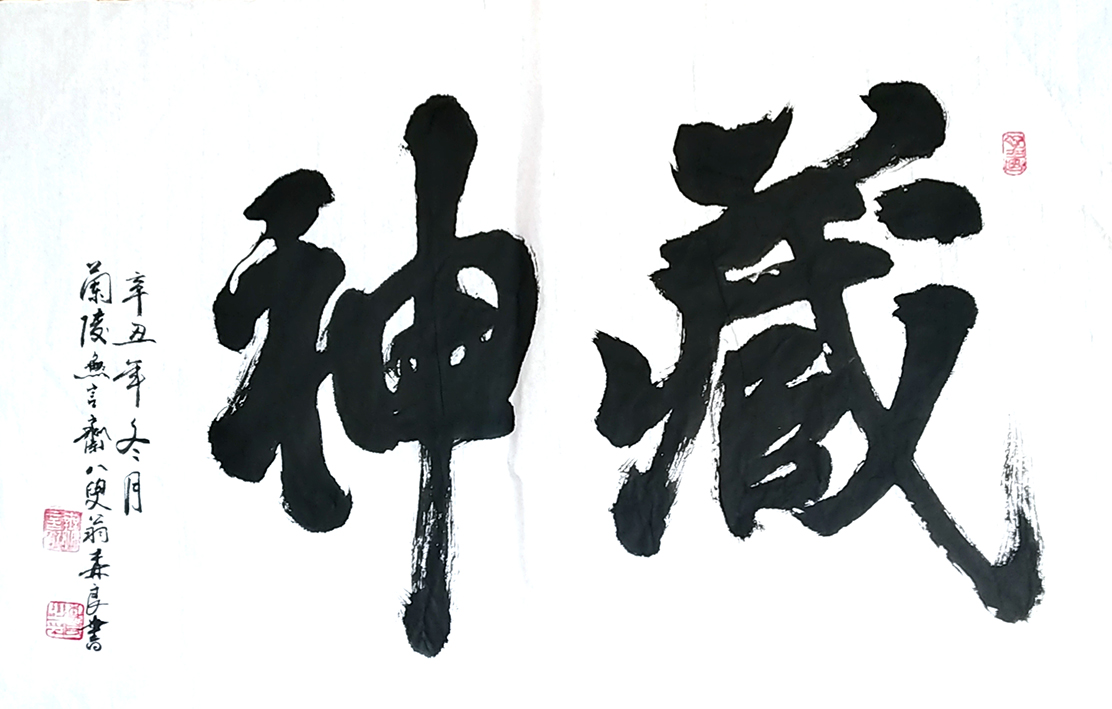 藏神
辛丑年冬月
蘭陵無言齋八叟翁森良書